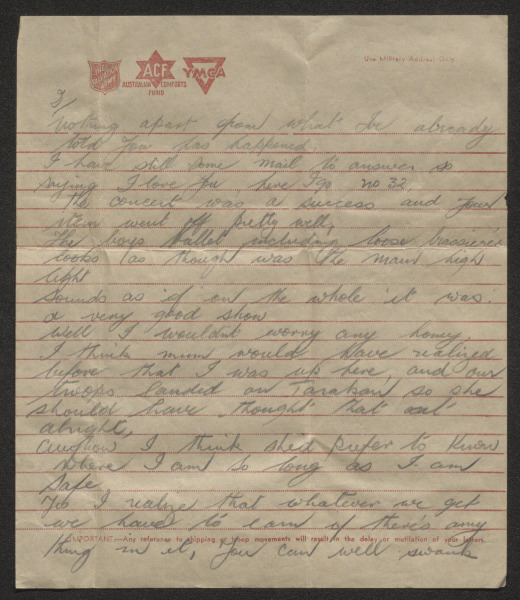 THE SALVATION ARMY
ACF
AUSTRALIAN COMFORTS
FUND
YMCA
Use Military Address Only.
3/
nothing apart from what I've already
told you has happened.
I have still some mail to answer so
saying I love you here I go no 32.
The concert was a success and your
item went off pretty well,
The boys Ballet including loose brassieres
looks as though was the main high
light
sounds as if on the whole it was
a very good show
Well I wouldn't worry any honey
I think mum would have realized
before that I was up here, and our
troops landed on Tarakan so she
should have thought that out
alright,
anyhow I think she'd prefer to know
where I am so long as I am
safe
Yes I realize that whatever we get
we have to earn if there's any
IMPORTANT—Any reference to shipping or troop movements will result in the delay or mutilation of your letters.
thing in it, you can well swank